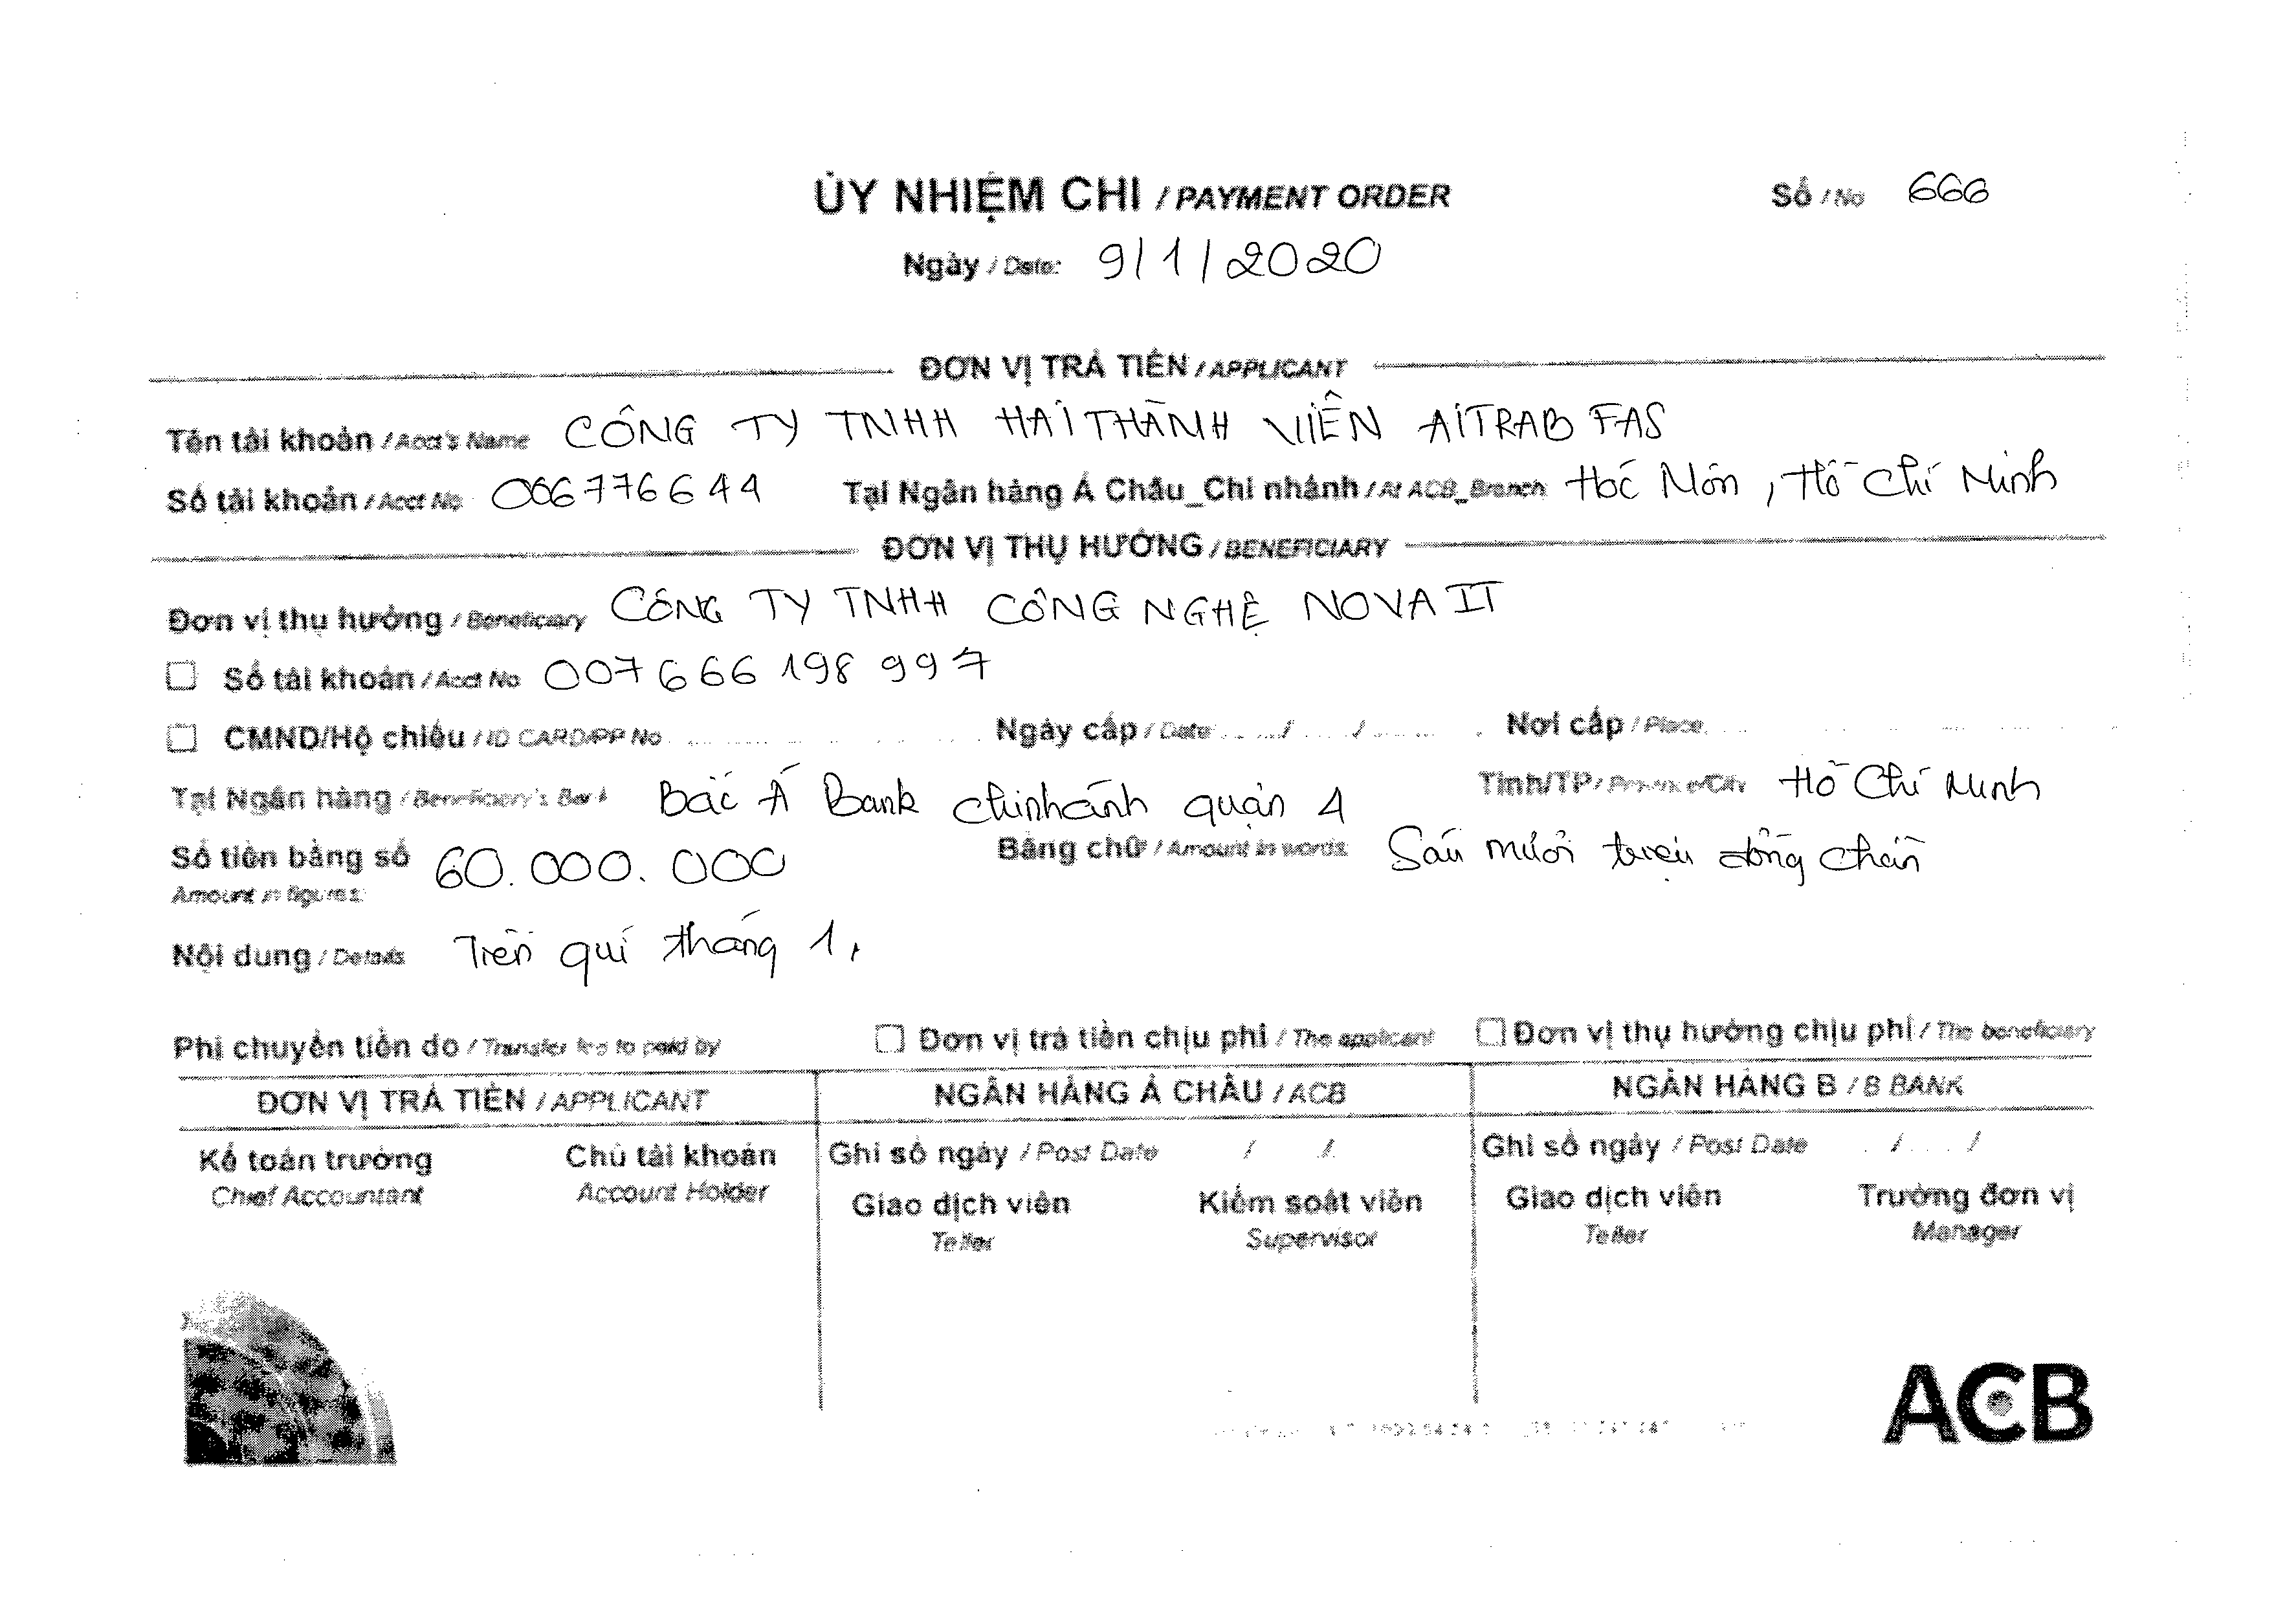 ỦY NHIỆM CHI / PAYMENT ORDER Số / No 666
Ngày / Date: 9/1/2020
ĐƠN VỊ TRẢ TIỀN / APPLICANT
Tên tài khoản / Acct's Name CÔNG TY TNHH HAI THÀNH VIÊN AITRAB FAS
Số tài khoản / Acct No 066776644 Tại Ngân hàng Á Châu_Chi nhánh / At ACB_Branch Hóc Môn, Hồ Chí Minh
ĐƠN VỊ THỤ HƯỞNG / BENEFICIARY
Đơn vị thụ hưởng / Beneficiary CÔNG TY TNHH CÔNG NGHỆ NOVA IT
Số tài khoản / Acct No 007666 198 997
CMND/Hộ chiếu / ID CARD/PP No Ngày cấp / Date / / Nơi cấp / Place
Tại Ngân hàng / Beneficiary's Bank Bắc Á Bank chi nhánh quận 4 Tỉnh/TP / Province/City Hồ Chí Minh
Số tiền bằng số 60.000.000 Bằng chữ / Amount in words Sáu mươi triệu đồng chẵn
Amount in figures:
Nội dung / Details Tiền quí tháng 1,
Phí chuyển tiền do / Transfer fee to paid by Đơn vị trả tiền chịu phí / The applicant Đơn vị thụ hưởng chịu phí / The beneficiary
ĐƠN VỊ TRẢ TIỀN / APPLICANT NGÂN HÀNG Á CHÂU / ACB NGÂN HÀNG B / B BANK
Kế toán trưởng Chủ tài khoản Ghi sổ ngày / Post Date / / Ghi sổ ngày / Post Date / /
Chief Accountant Account Holder Giao dịch viên Kiểm soát viên Giao dịch viên Trưởng đơn vị
Teller Supervisor Teller Manager
ACB